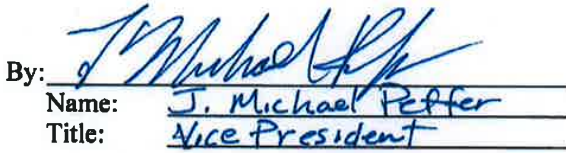 By: J Michael Peffer
Name: J. Michael Peffer
Title: Vice President